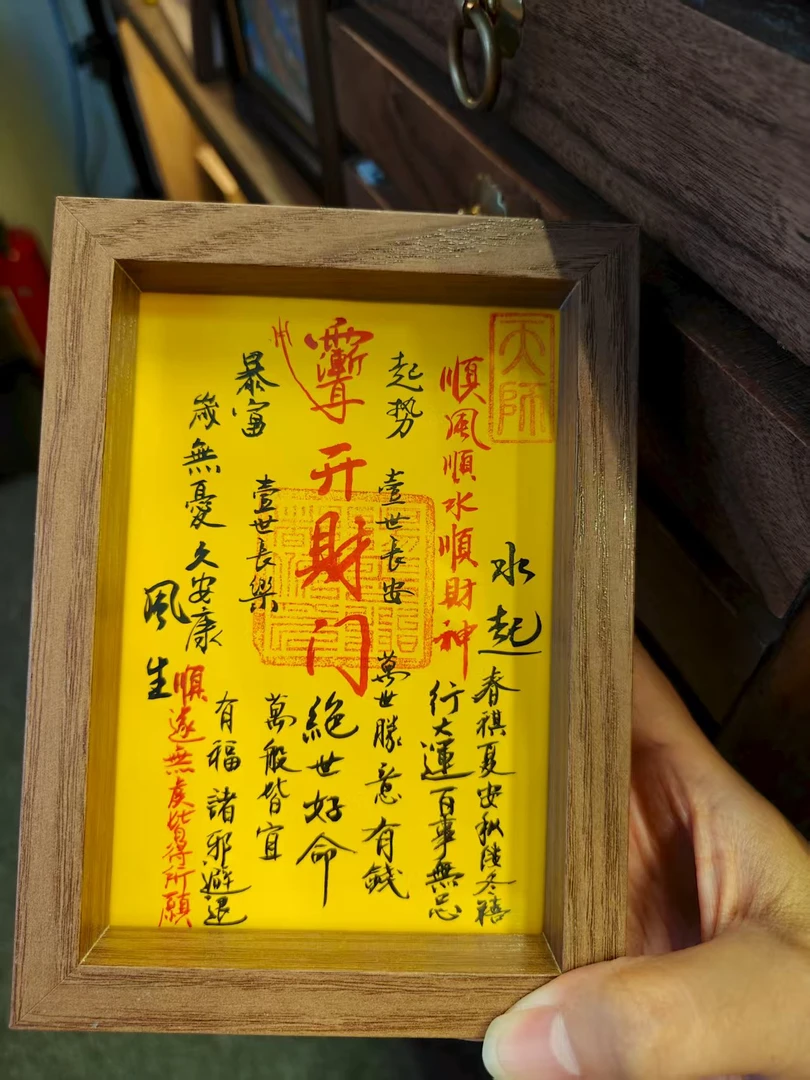 天師
水起
春祺夏安秋绥冬禧
順風順水順財神
行大運百事無忌
起势
壹世長安
萬世勝意有錢
开財门
絕世好命
暴富
壹世長樂
萬般皆宜
歲無憂久安康
有福諸邪避退
風生
順遂無虞皆得所願